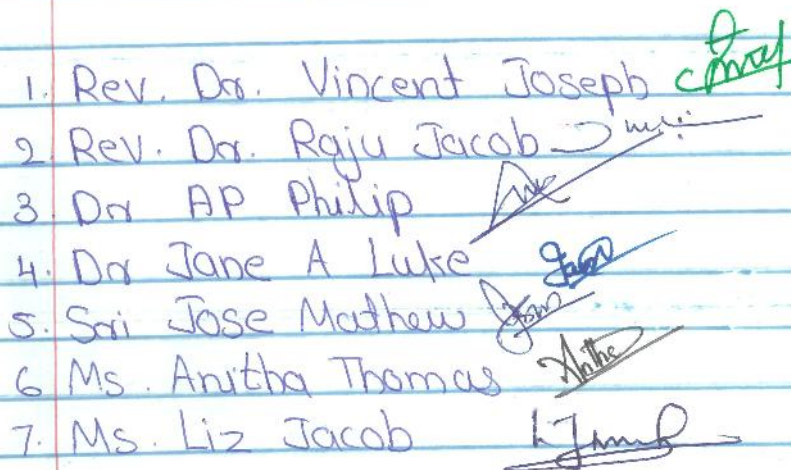 1. Rev. Dr. Vincent Joseph
2 Rev. Dr. Raju Jacob
3 Dr AP Philip
4. Dr Jane A Luke
5. Sri Jose Mathew
6 Ms. Anitha Thomas Anitha
7. Ms. Liz Jacob